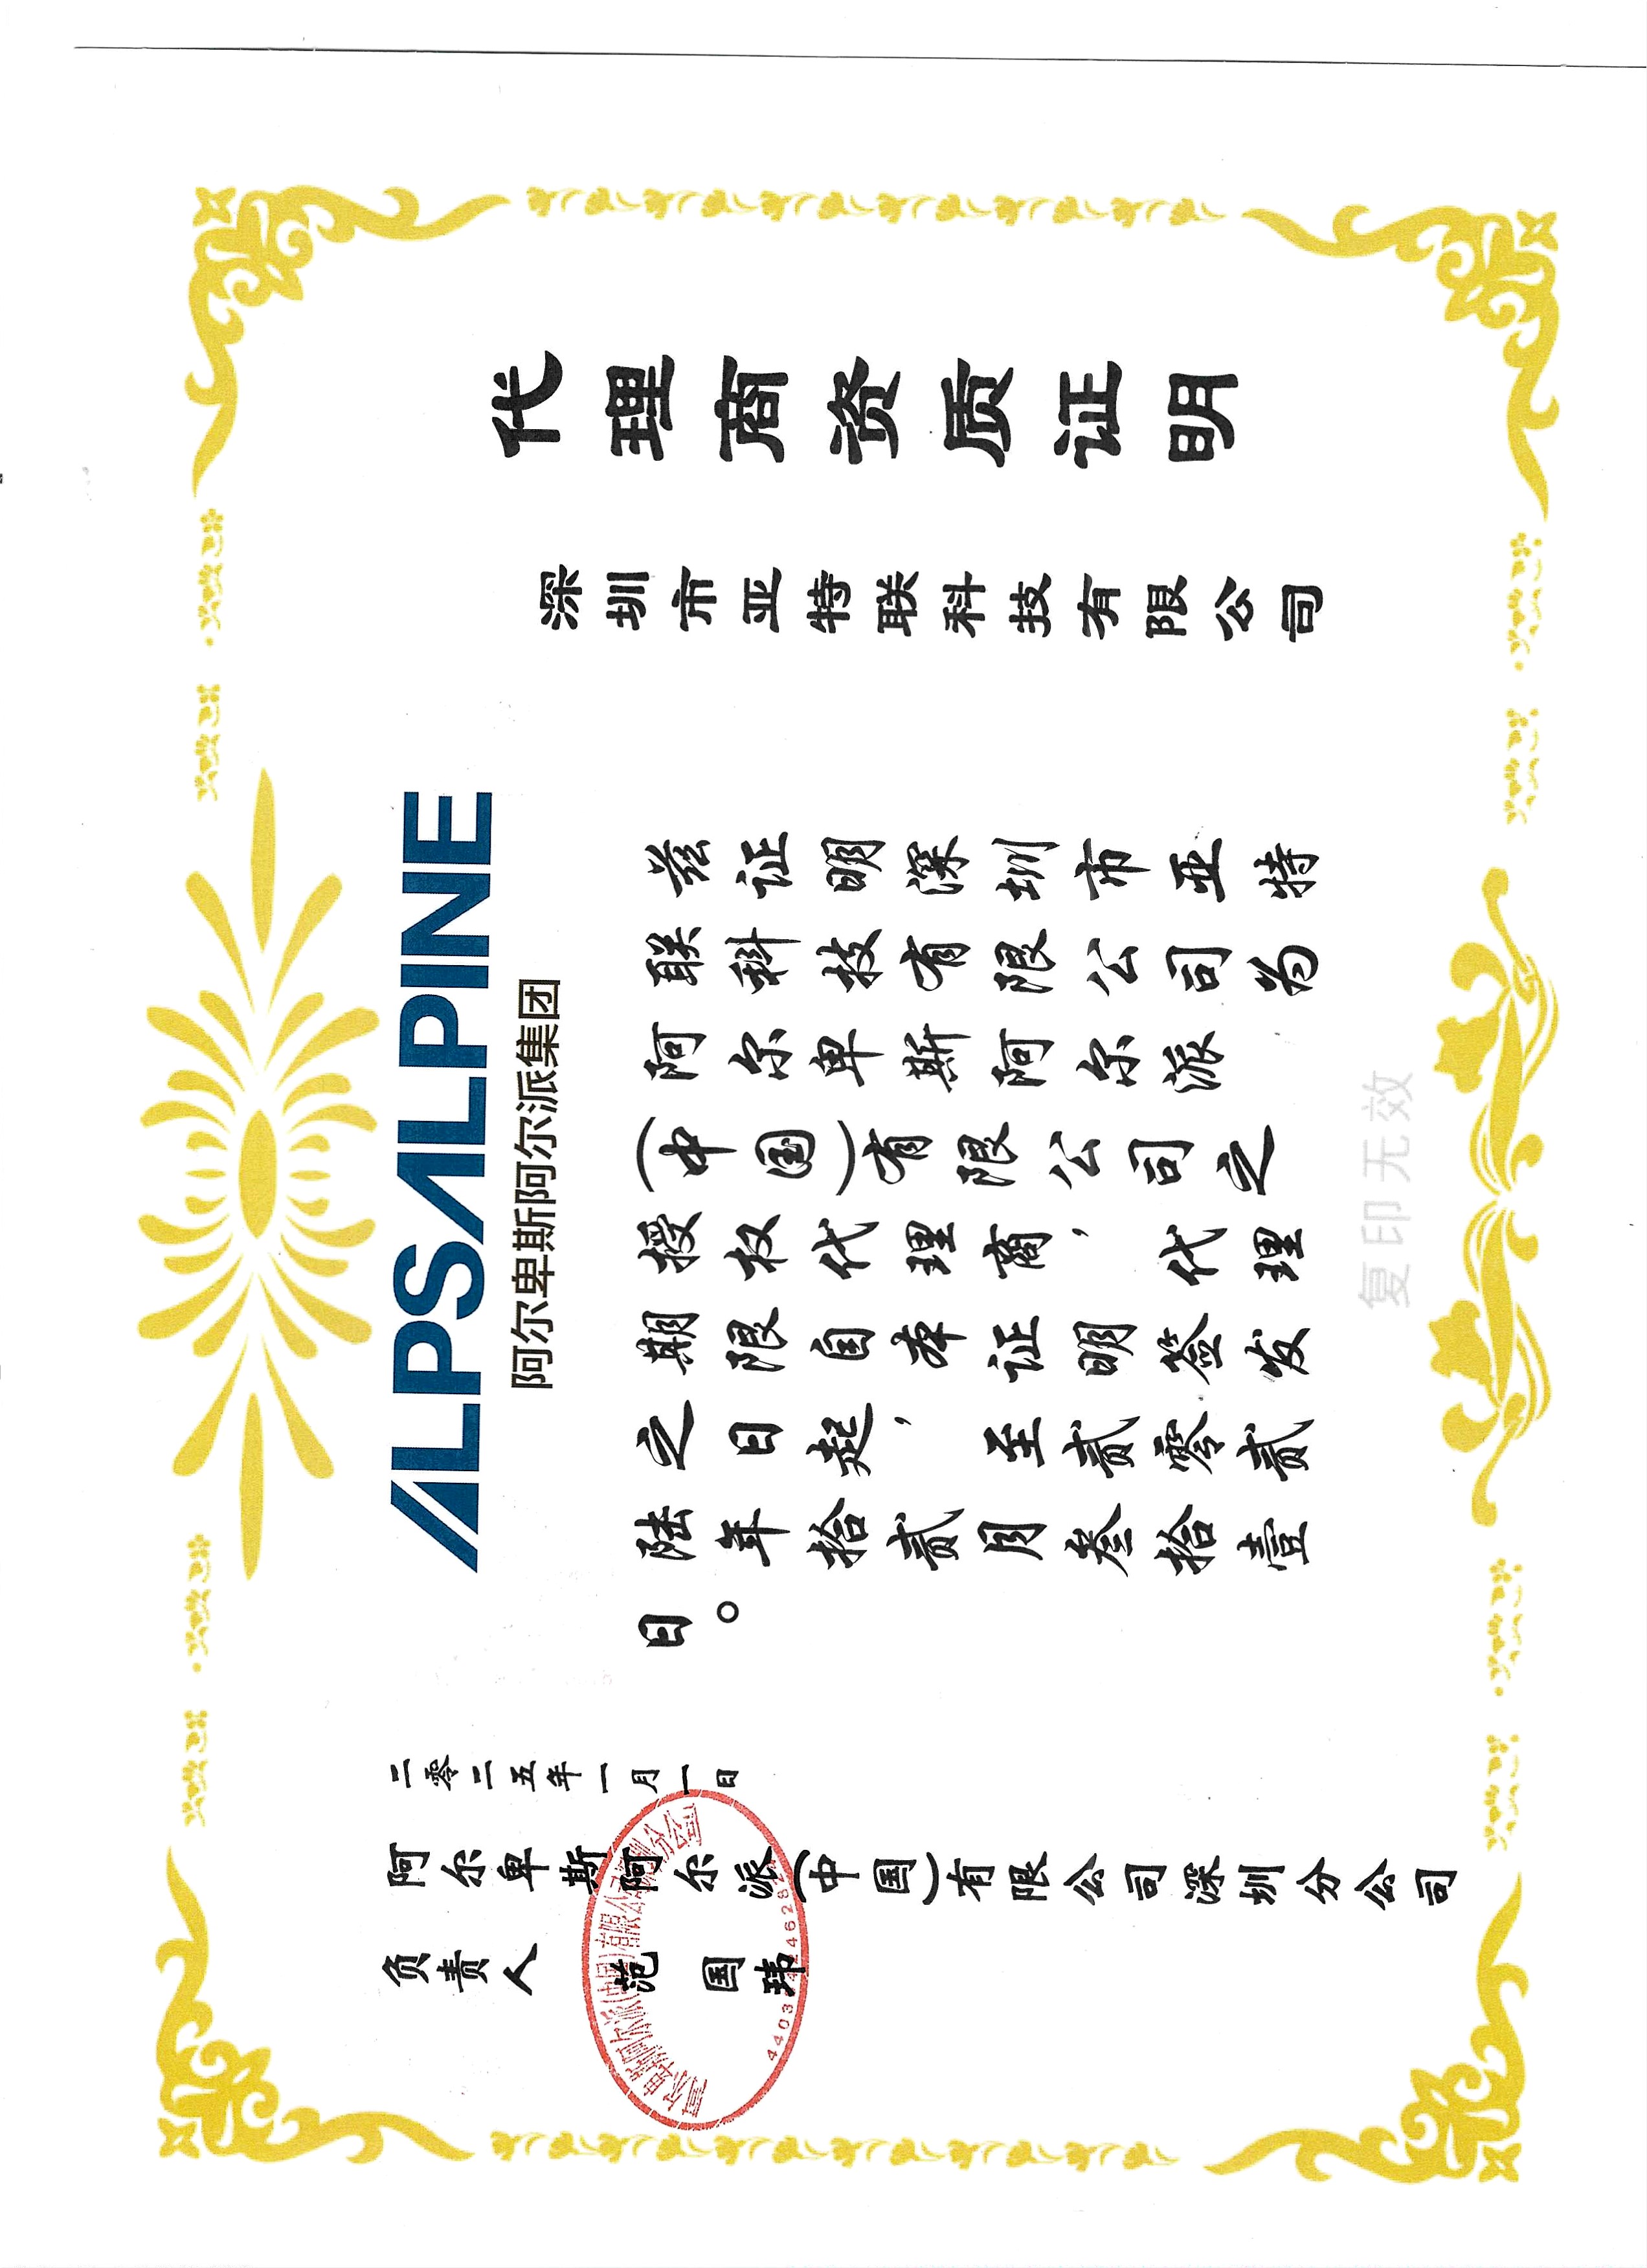 ALPSALPINE
阿尔卑斯阿尔派集团
代理商资质证明
深圳市亚特联科技有限公司
兹证明深圳市亚特
联科技有限公司为
阿尔卑斯阿尔派
(中国)有限公司之
授权代理商，代理
期限自本证明签发
之日起，至贰零贰
陆年拾贰月叁拾壹
日。
二零二五年一月一日
阿尔卑斯阿尔派(中国)有限公司深圳分公司
负责人 范国玮
阿尔卑斯阿尔派(中国)有限公司深圳分公司
复印无效